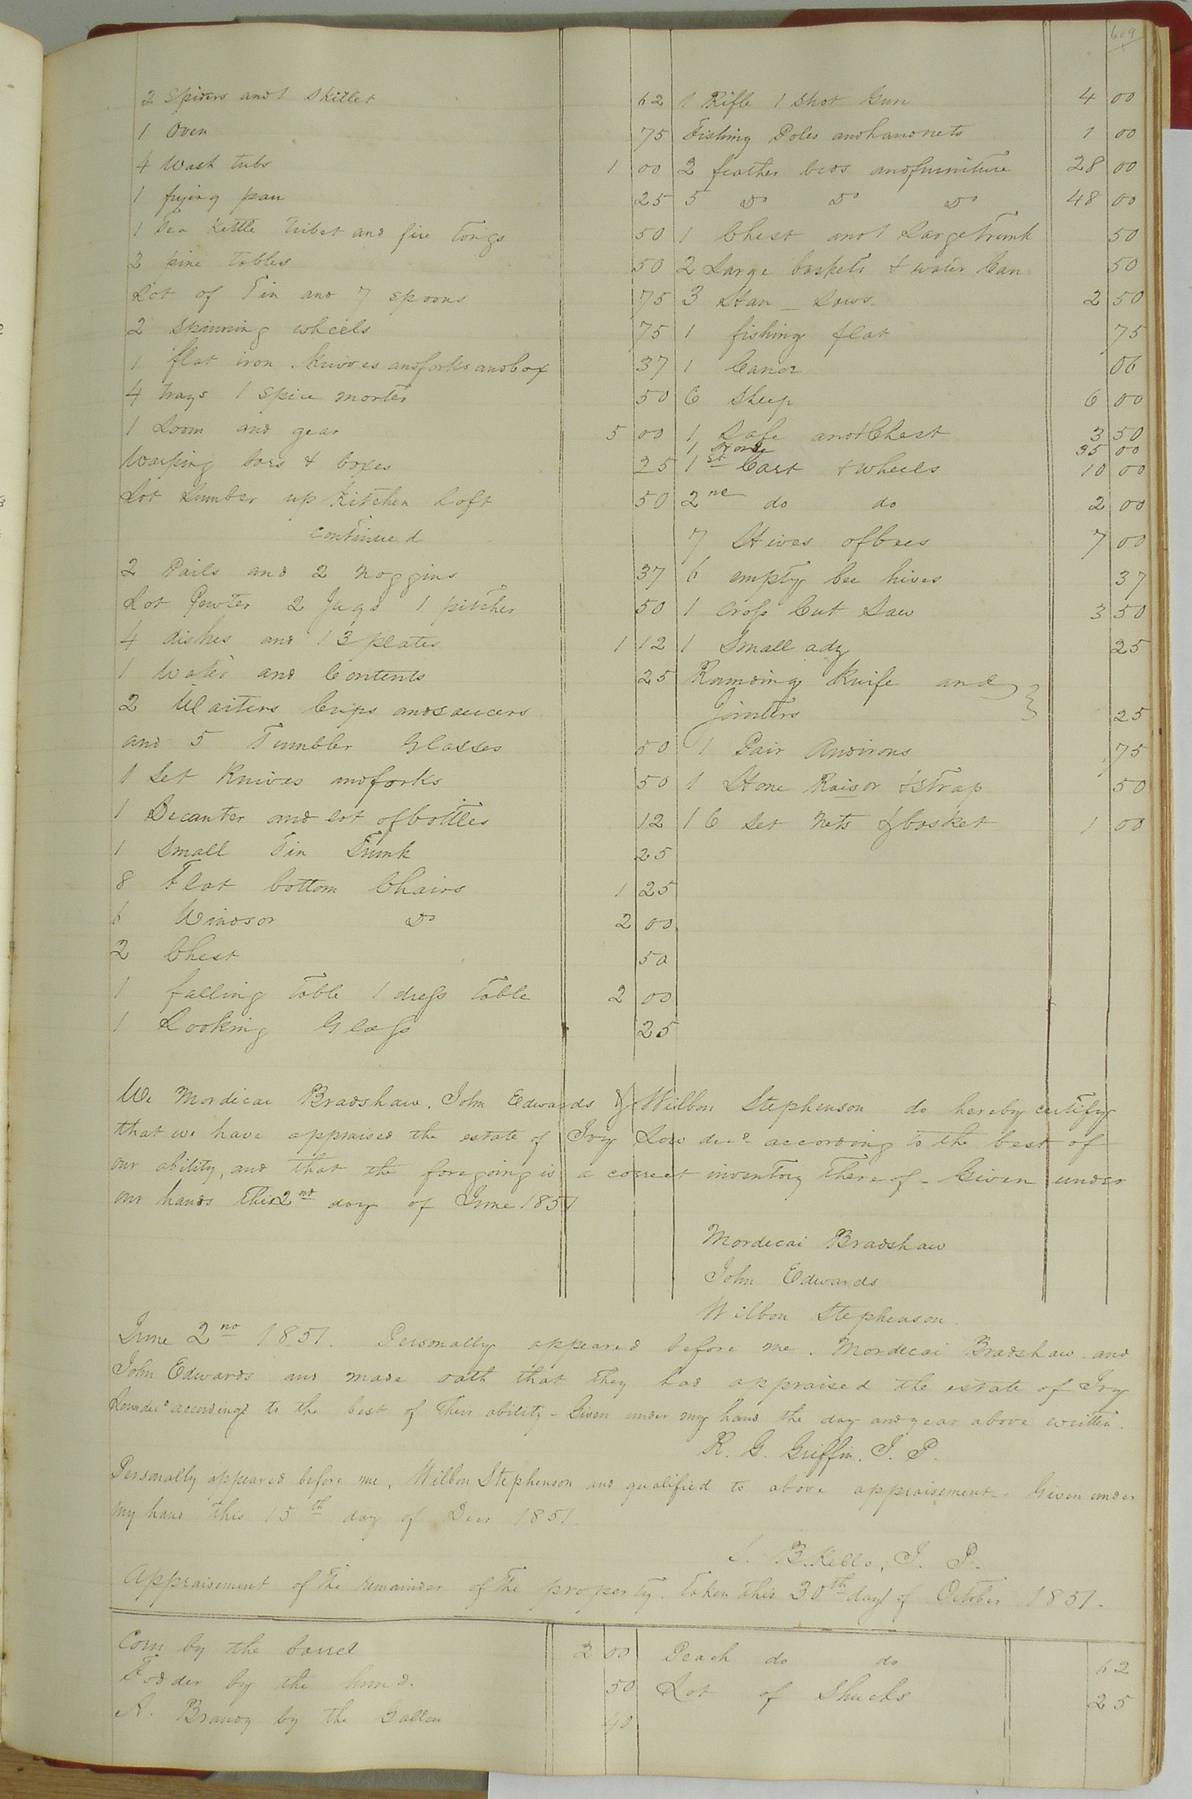 609
2 Spiders and 1 Skillet 62
1 Oven 75
4 Wash tubs 1 00
1 frying pan 25
1 Tea Kettle Tribet and fire tongs 50
2 pine tables 50
Lot of Tin and 7 spoons 75
2 Spinning wheels 75
1 flat iron. Knives and forks and box 37
4 trays 1 Spice morter 50
1 Loom and gear 5 00
Warping bars & boxes 25
Lot Lumber up Kitchen loft 50
continued
2 Pails and 2 noggins 37
Lot Pewter 2 Jugs 1 pitcher 50
4 dishes and 13 plates 1 12
1 and Contents 25
2 Waiters Cups and saucers
and 5 Tumbler Glasses 50
1 Set Knives and forks 50
1 Decanter and lot of bottles 12
1 Small Tin Trunk 25
8 Flat bottom Chairs 1 25
6 Windsor Do 2 00
2 Chest 50
1 falling table 1 dress table 2 00
1 Looking Glass 25
1 Rifle 1 Shot Gun 4 00
Fishing Poles and hand nets 1 00
2 feather beds and furniture 28 00
5 Do Do Do 48 00
1 Chest and 1 Large Trunk 50
2 Large baskets & water Can 50
3 Stan Saws 2 50
1 fishing flat 75
1 Canoe 06
6 Sheep 6 00
1 Safe and Chest 3 50
1 Horse 35 00
1st Cart & wheels 10 00
2nd do do 2 00
7 Hives of bees 7 00
6 empty bee hives 37
1 Cross Cut Saw 3 50
1 Small adz 25
Rounding Knife and
Jointers 25
1 Pair Andirons 75
1 Hone Raisor & Strap 50
16 Set Nets & basket 1 00
We Mordicai Bradshaw. John Edwards & Wilbon Stephenson do hereby certify
that we have appraised the estate of Ivy Low decd according to the best of
our ability, and that the foregoing is a correct inventory thereof - Given under
our hands this 2nd day of June 1851
Mordecai Bradshaw
John Edwards
Wilbon Stephenson.
June 2nd 1851. Personally appeared before me. Mordecai Bradshaw and
John Edwards and made oath that they had appraised the estate of Ivy
Low decd according to the best of their ability - Given under my hand the day and year above written.
R. G. Griffin, J. P.
Personally appeared before me, Wilbon Stephenson and qualified to above appraisement. Given under
my hand this 15th day of Decr 1851.
B. Kello, J. P.
Appraisement of the remainder of the property. taken this 30th day of October 1851.
Corn by the barrel 2 00
Fodder by the hund. 50
A. Brandy by the Gallon 40
Peach do do 62
Lot of Shucks 25